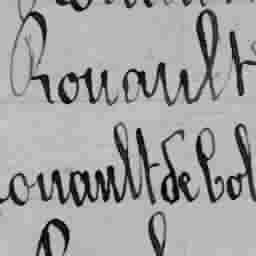 Rouault
ouault de Col